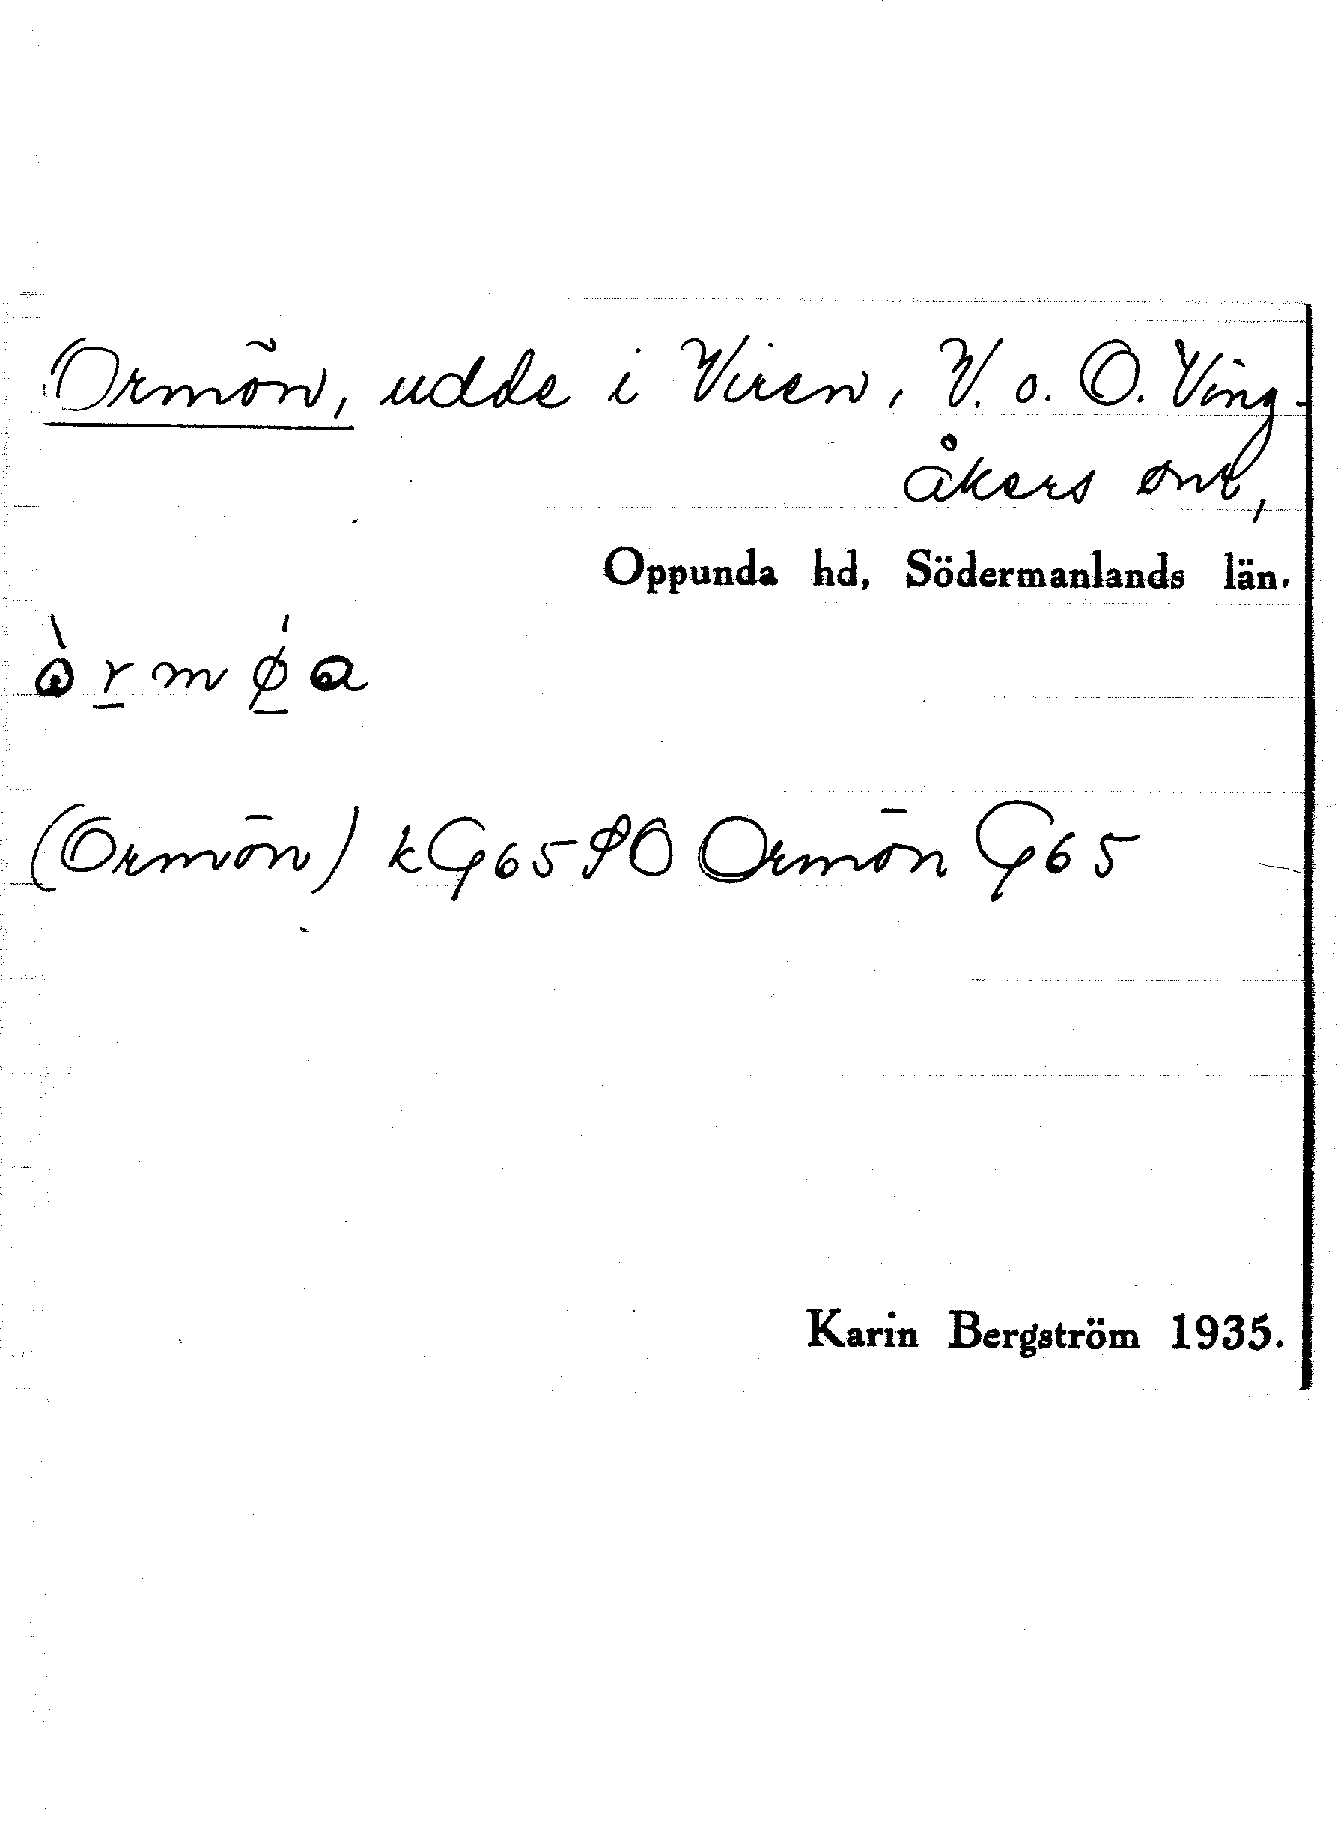 Ormön, udde i Viren, V. o. Ö. Ving-
åkers snr,
Oppunda hd, Södermanlands län.
(Ormön) kG65 Ormön G65
Karin Bergström 1935.